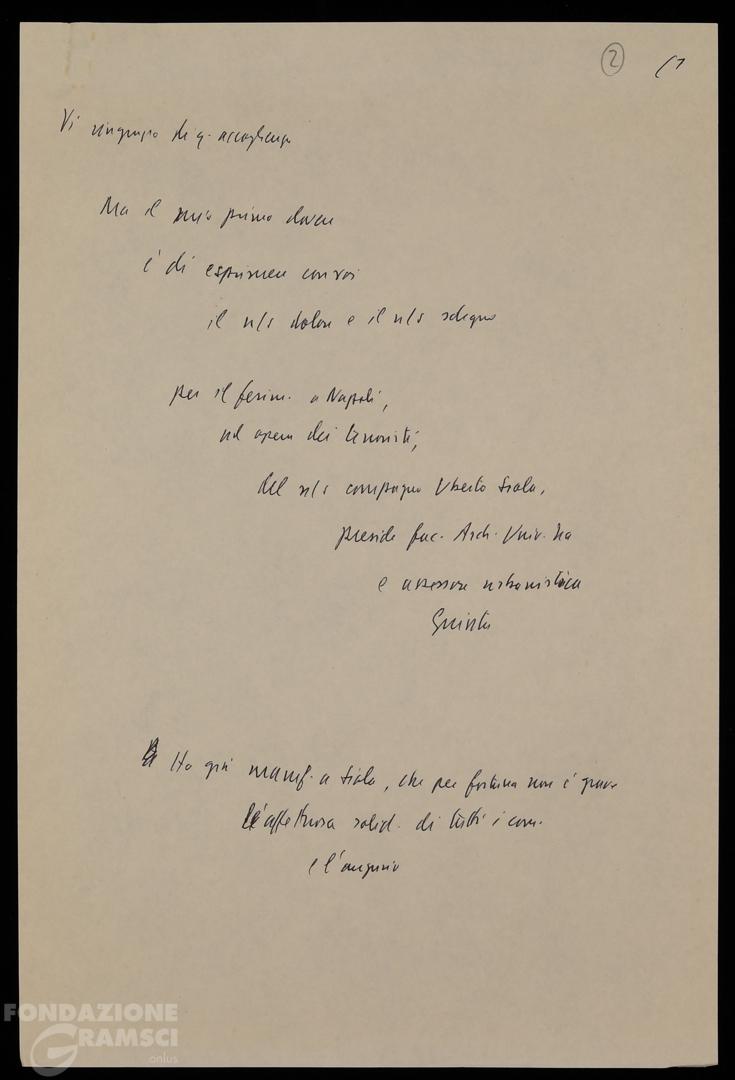 2
Vi ringrazio di q. accoglienza
Ma il mio primo dovere
è di esprimere con voi
il n/s dolore e il n/s sdegno
per il ferim. a Napoli,
ad opera dei terroristi,
del n/s compagno Uberto Siola,
preside fac. Arch. Univ. Na
e assessore urbanistica
Giunta
Ho già manif. a Siola, che per fortuna non è grave
l'affettuosa solid. di tutti i com.
e l'augurio
FONDAZIONE
GRAMSCI
onlus